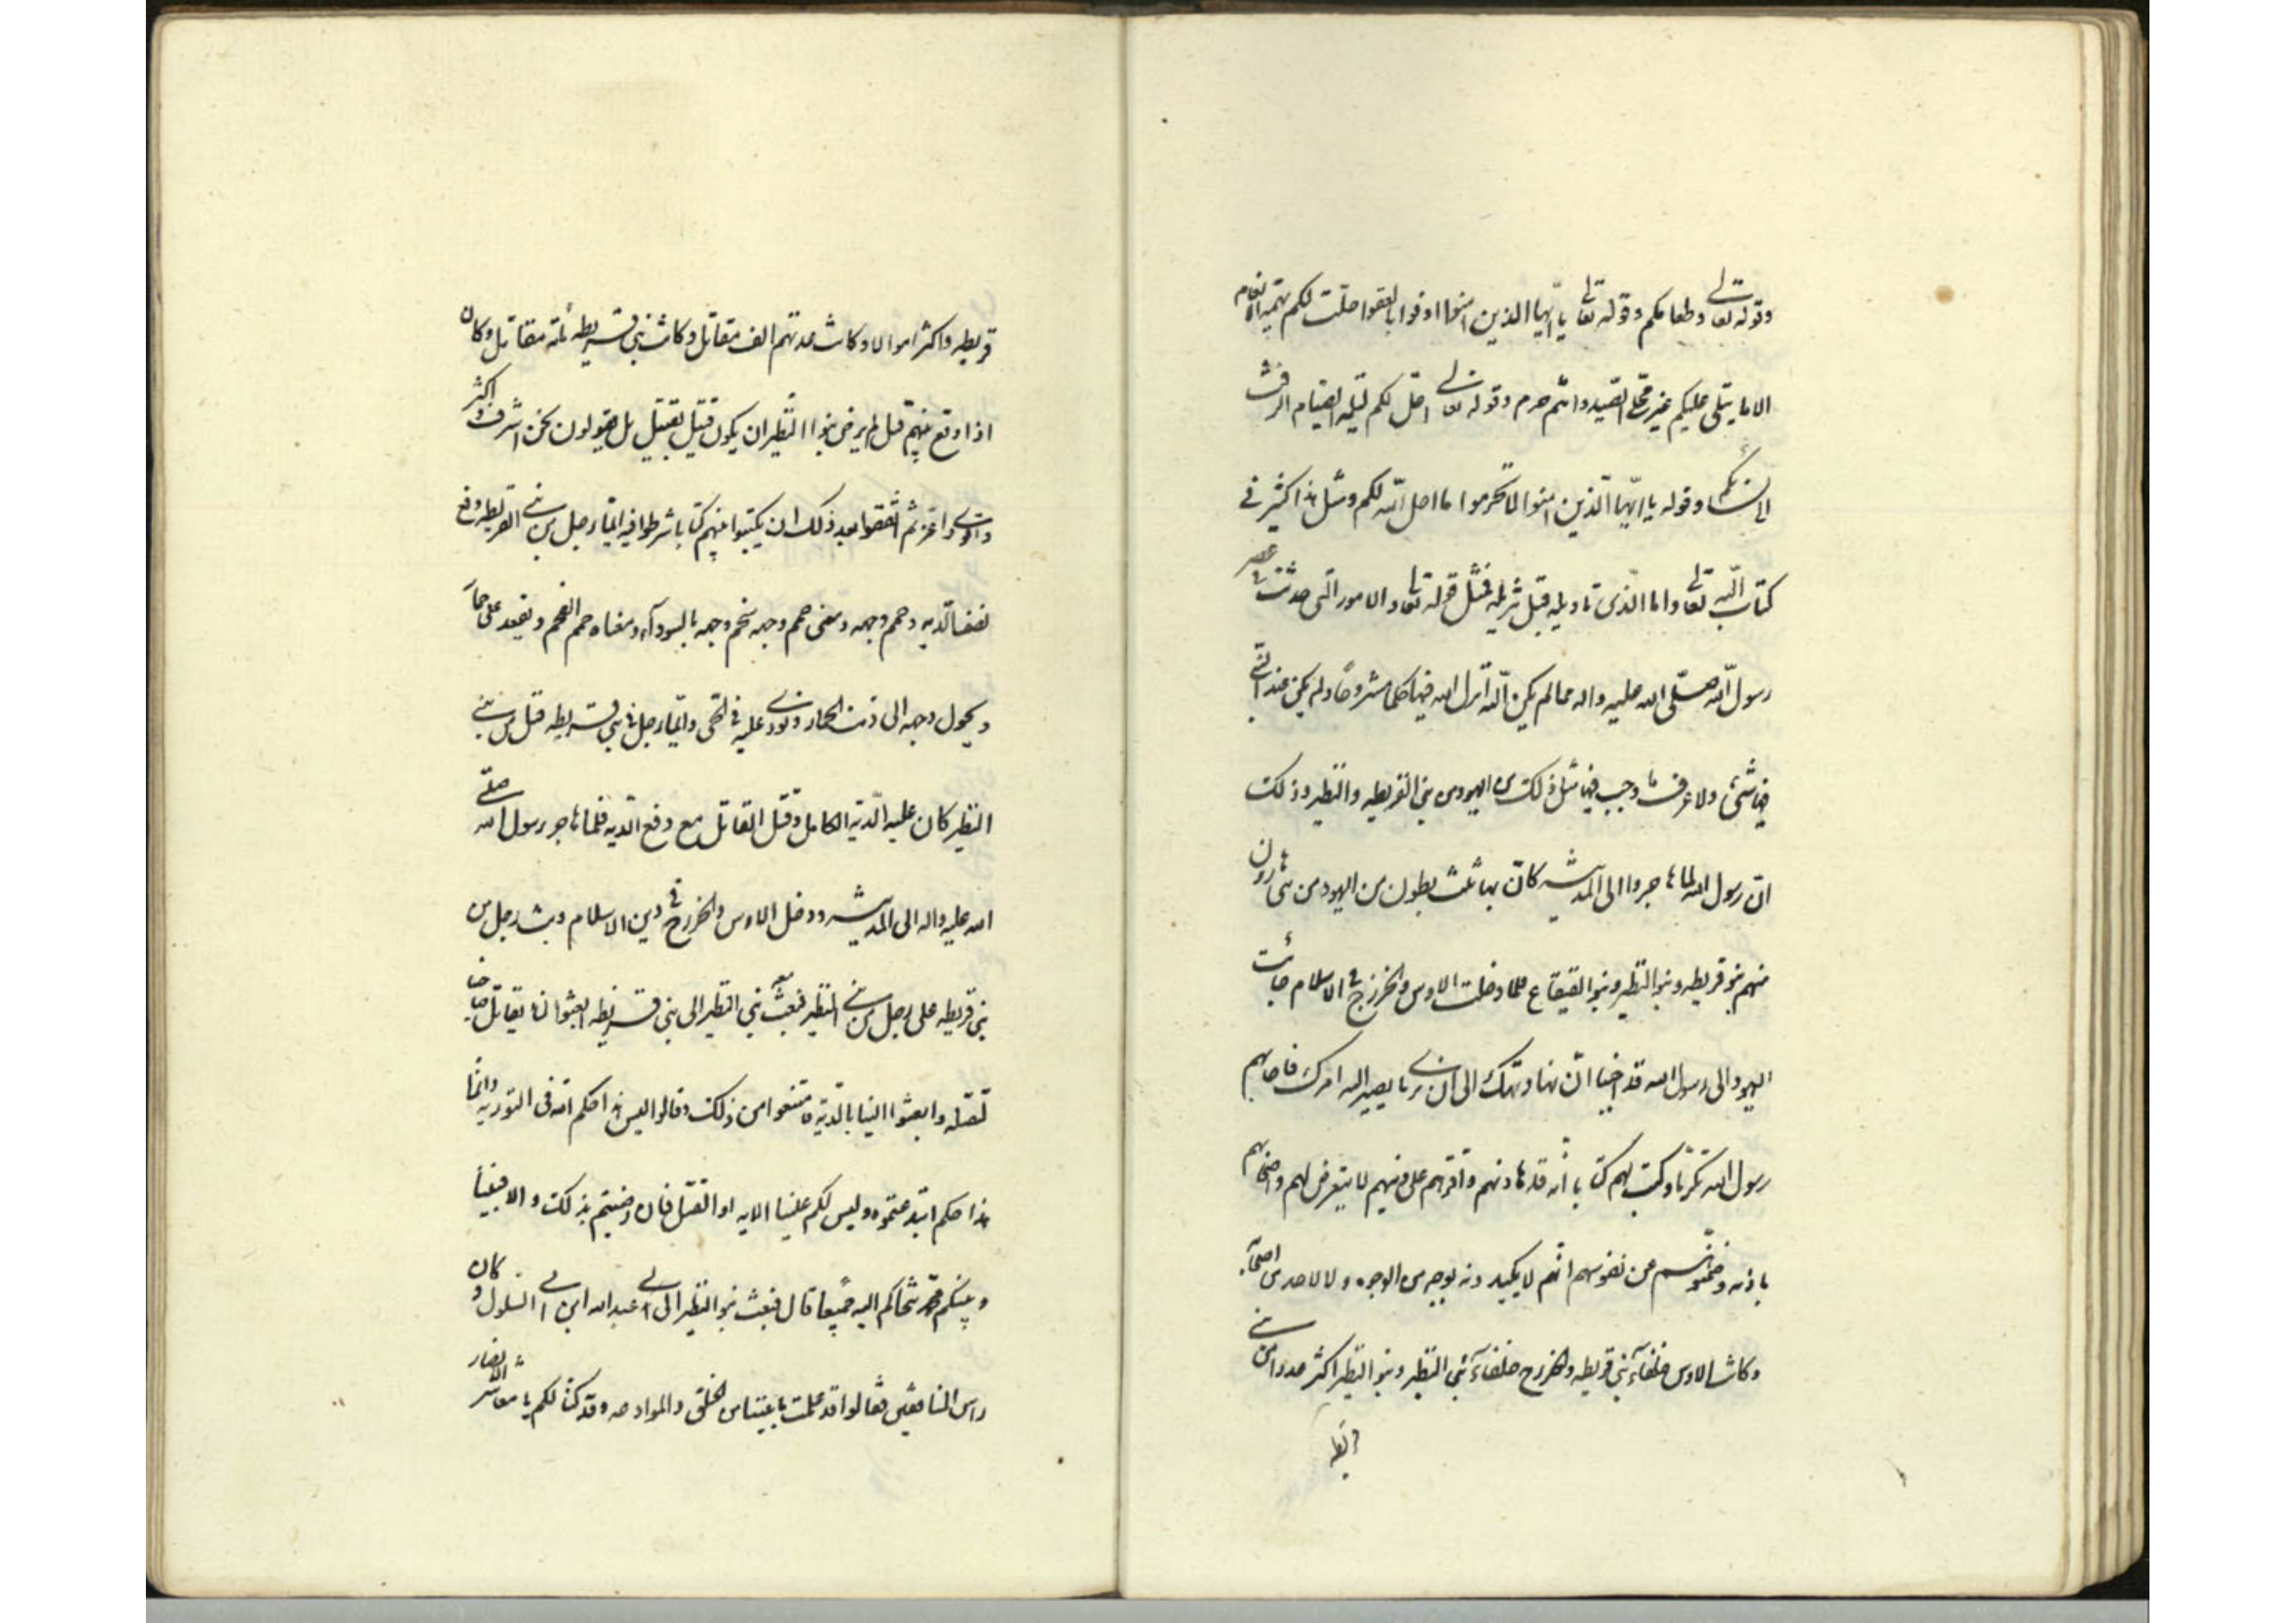 وقوله تعالى وطعامكم وقوله تعالى يا ايّها الذين امنوا اوفوا بالعقود احلّت لكم بهيمة الانعام
الا ما يتلى عليكم غير محلّي الصّيد وانتم حرم وقوله تعالى احلّ لكم ليلة الصّيام الرفث
الى نسائكم وقوله يا ايّها الّذين امنوا لا تحرموا ما احل الله لكم ومثل هذا كثير في
كتاب الله تعالى واما الذى تاويله قبل تنزيله فمثل قوله تعالى والامور التى حدثت في عصر
رسول الله صلّى الله عليه واله مما لم يكن الله انزل الله فيها حكما مشروحًا ولم يكن عند النبي
فيها شيئ ولا عرف ما وجب فيها مثل ذلك من اليهود من بني القريظه والنظير وذلك
انّ رسول الله لما هاجروا الى المدينه كان بها ثلث بطون من اليهود من بني هارون
منهم بنو قريظه وبنو النظير وبنو القينقاع فلما دخلت الاوس والخزرج في الاسلام جائت
اليهود الى رسول الله قد احببنا انّ نهادنك الى ان نرى ما يصير اليه امرك فاجابهم
رسول الله تكرّمًا وكتب لهم كتابا انّه قد هادنهم واقرّهم على دينهم لا يتعرض لهم واصحابهم
باذنه وضمنوا لهم عن نفوسهم انّهم لا يكيدونه بوجه من الوجوه ولا لاحد من اصحابه
وكانت الاوس حلفآء بني قريظه والخزرج حلفآء بني النظير وبنو النظير اكثر عددا من بني
قريظه
قريظه واكثر اموالا وكانت عدتهم الف مقاتل وكانت بني قريظه مائة مقاتل وكان
اذا وقع بينهم قتل لم يرض بنوا النّظير ان يكون قتيل بقتيل بل يقولون نحن اشرف واكثر
واقوى واعز ثم اتّفقوا بعد ذلك ان يكتبوا بينهم كتابا شرطوا فيه ايّما رجل من بني القريظه دفع
نصف الدّيه وحمم وجهه ومعنى حمم وجهه سخم وجهه بالسوداء ومعناه حمم الفحم ويقعد على حمار
ويحول وجهه الى ذنب الحمار ونودي عليه في الحّى وايّما رجل من بني قريظه قتل من بني
النظير كان عليه الدّية الكامل وقتل القاتل مع دفع الدّيه فلما هاجر رسول الله صلّى
الله عليه واله الى المدينه ودخل الاوس والخزرج في دين الاسلام وثب رجل من
بني قريظه على رجل من بني النظير فبعث بني النظير الى بني قريظه ابعثوا لنا بقاتل صاحبنا
لنقتله وابعثوا الينا بالدّية فامتنعوا من ذلك وقالوا ليس هذا حكم الله في التوريه وانّما
هذا حكم ابتدعتموه وليس لكم علينا الا الديه او القتل فان رضيتم بذلك والا فبيننا
وبينكم محمّد نتحاكم اليه جميعًا قال فبعث بنو النظير الى عبد الله ابن ابي السلول وكان
راس المنافقين فقالوا قد علمت ما بيننا من الحلف والموادعه وقد كنّا لكم يا معاشر الانصار